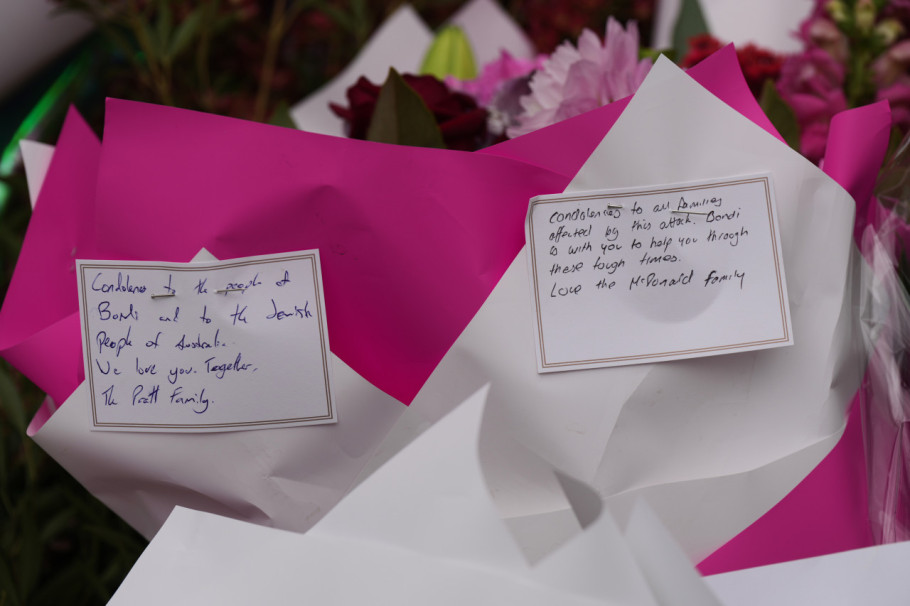 Condolences to the people of
Bondi and to the Jewish
People of Australia.
We love you. Together.
The Pratt Family.
Condolences to all families
affected by this attack. Bondi
is with you to help you through
these tough times.
Love the McDonald Family